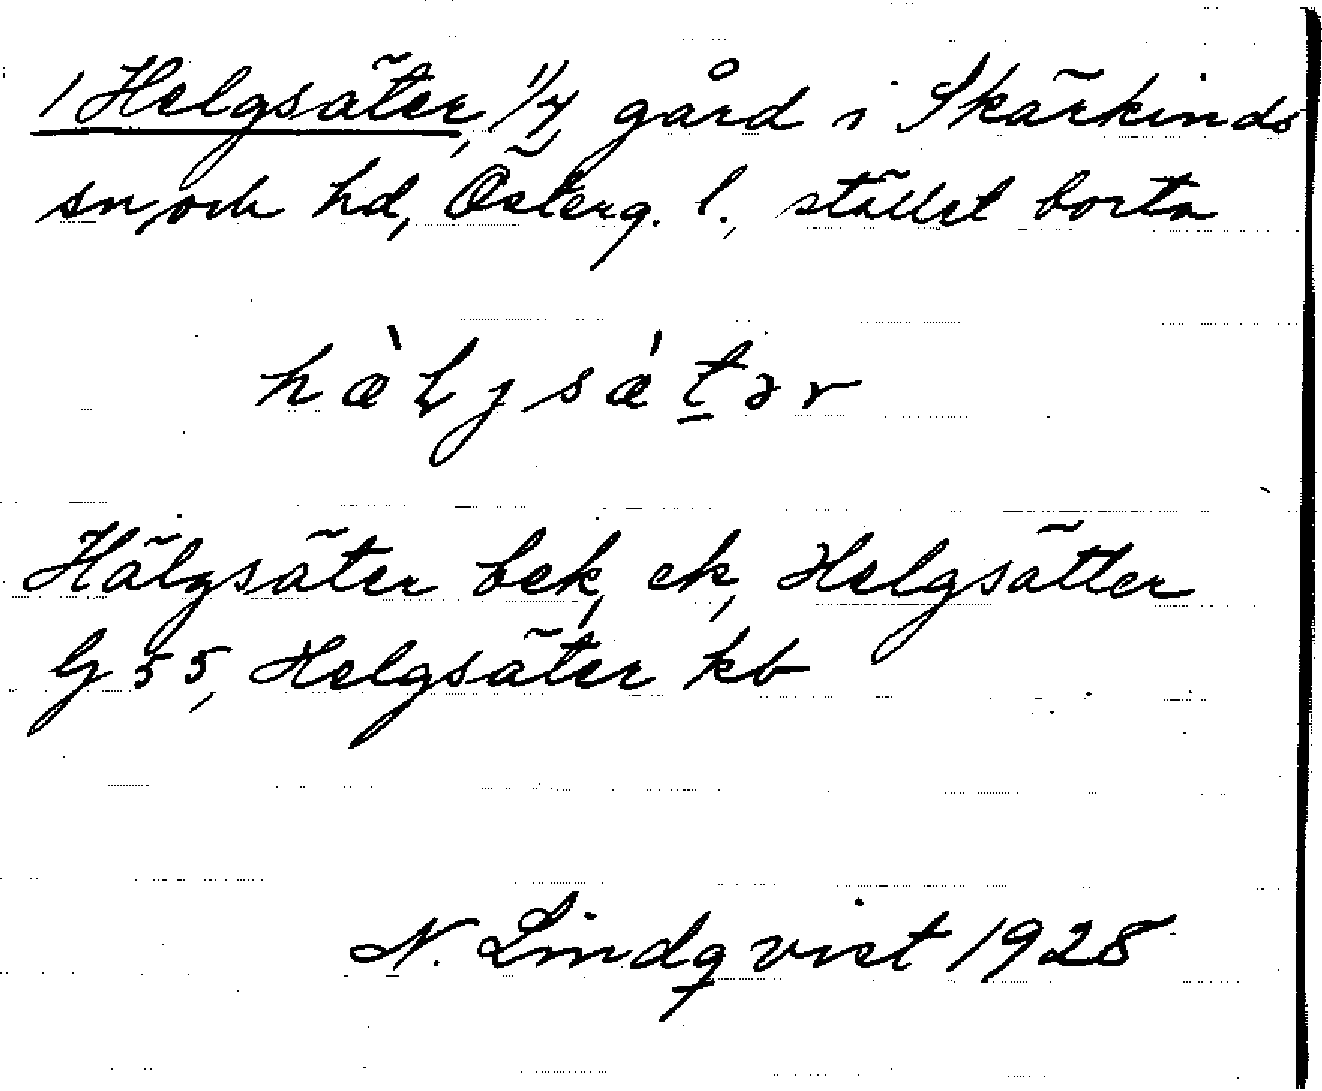 1 Helgsäter, 1/4, gård i Skärkinds
sn, och hd, Österg. l., stället borta
hæ̀ljsǽtər
Hälgsäter bek, ek, Helgsätter
G 55, Helgsäter kb
N. Lindqvist 1928